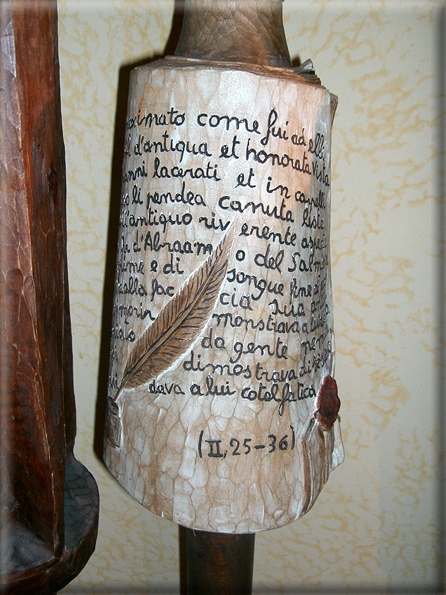 ximato come fui ad elli
d'antiqua et honorata vista
anni lacerati et in capelli
li pendea canuta lista
antiquo riv erente aspe
d'Abraam o del Salm
ume e di sangue fine
dalla fac cia sua
monstrava
da gente
dimostrava
dava a lui cotal fatica
(II, 25-36)